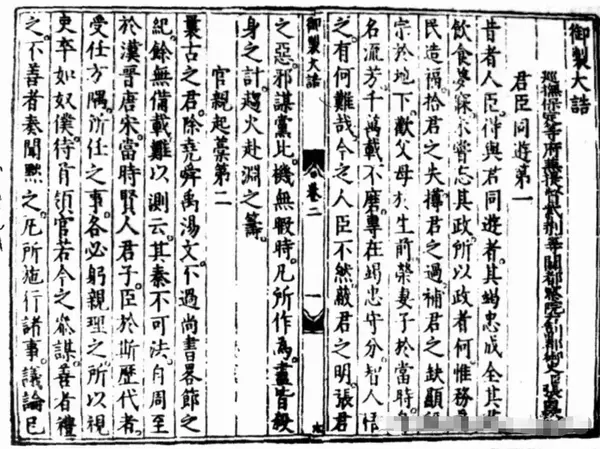 御製大誥
巡撫保定等府兼提督荊等關都察院右副都御史臣張
君臣同遊第一
昔者人臣得與君同遊者其竭忠成全其
飲食夢寐未嘗忘其政所以政者何惟務
民造福拾君之失撙君之過補君之缺顯
宗於地下歡父母於生前榮妻子於當時
名流芳千萬載不磨專在竭忠守分智人悟
之有何難哉今之人臣不然蔽君之明張君
御製大誥 卷二 一
之惡邪謀黨比機無暇時凡所作為盡皆殺
身之計趨火赴淵之籌
官親起藁第二
曩古之君除堯舜禹湯文不過尚書畧節之
紀餘無備載難以測云其秦不可法自周至
於漢晉唐宋當時賢人君子臣於斯歷代者
受任方隅所任之事各必躬親理之所以視
吏卒如奴僕待首領官若今之參謀善者禮
之不善者奏聞黜之凡所施行諸事議論已